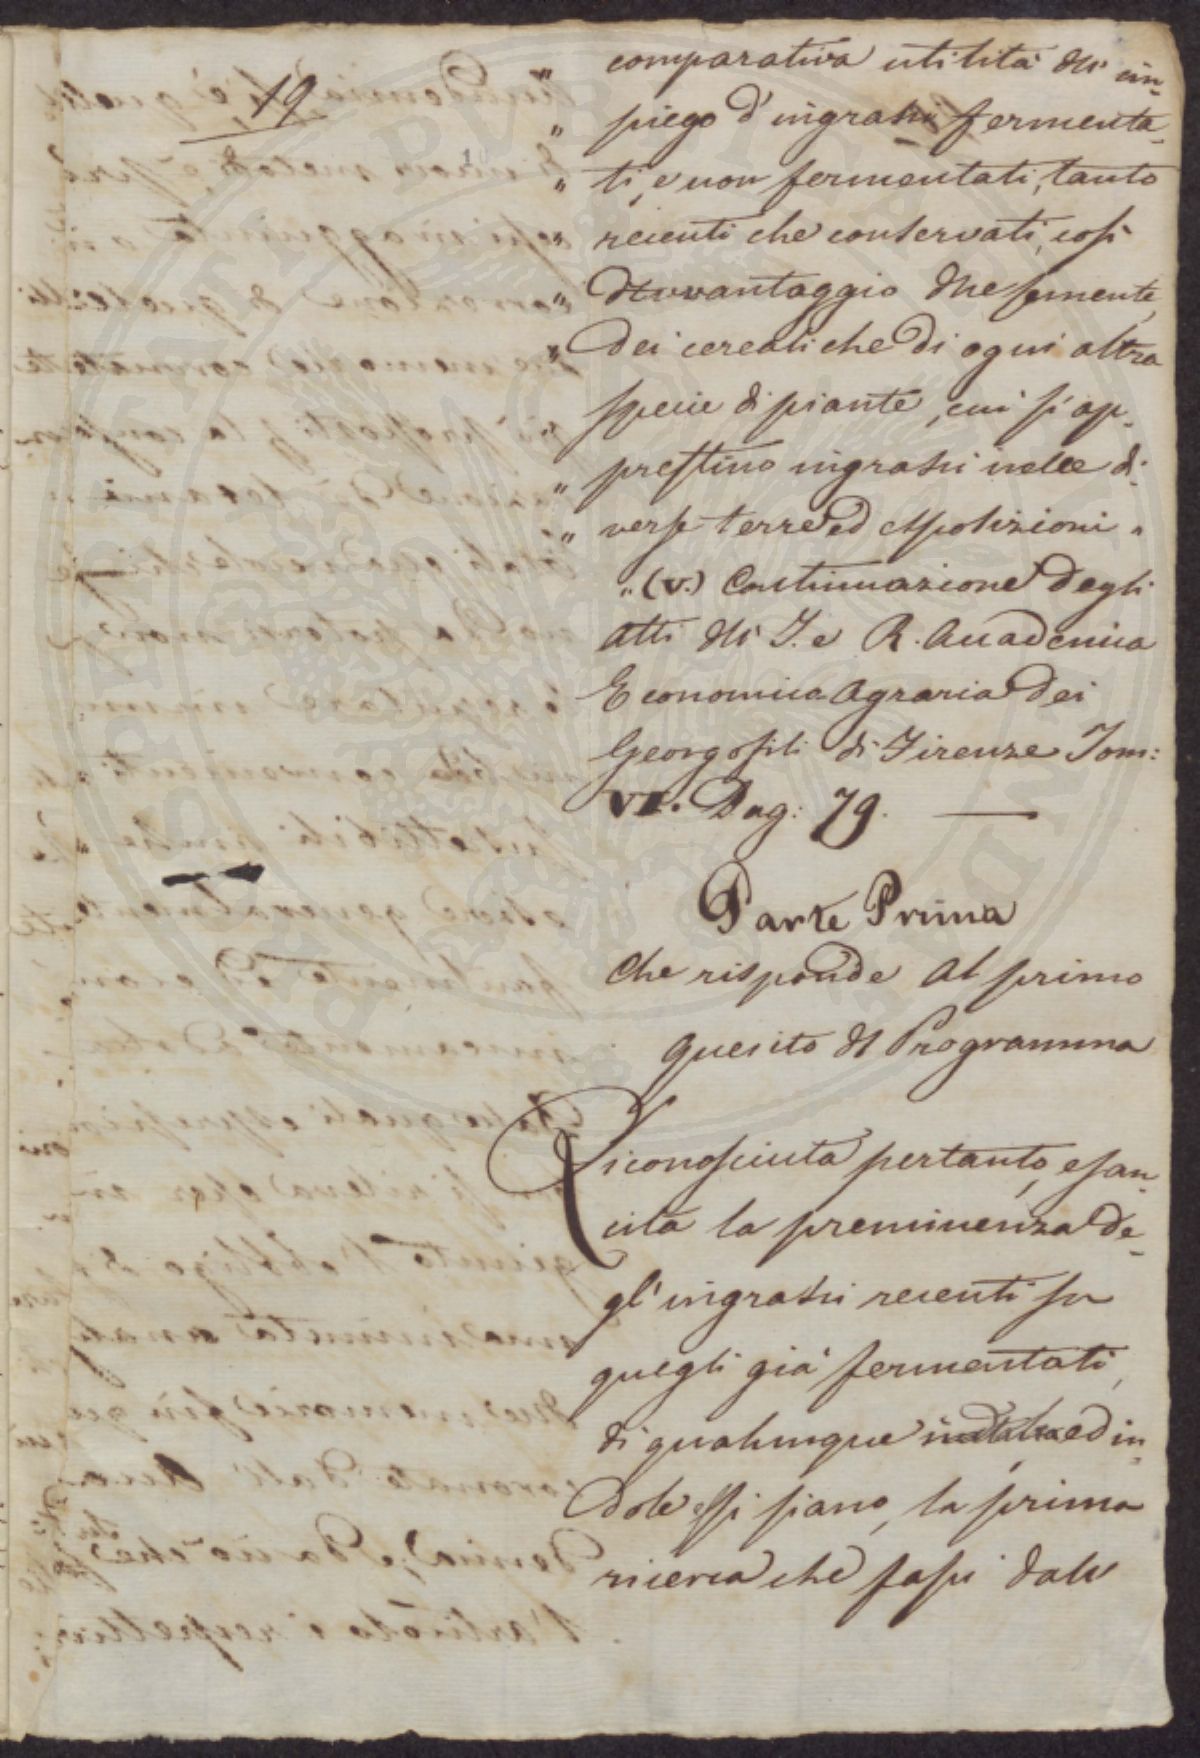 19
comparativa utilità dell' im-
" piego d' ingrassi fermenta-
" ti, e non fermentati, tanto
" recenti che conservati, così
" a vantaggio delle semente
" dei cereali che di ogni altra
" specie di piante, cui si ap-
" prestino ingrassi nelle di-
" verse terre ed esposizioni "
" (v.) Continuazione degli
Atti dell' I. e R. Accademia
Economica Agraria dei
Georgofili di Firenze Tom:
VI. Pag: 79.
Parte Prima
Che risponde al primo
quesito del Programma
Riconosciuta pertanto, e san-
cita la preminenza de-
gl' ingrassi recenti su
quegli già fermentati,
di qualunque ed in-
dole essi siano, la prima
ricerca che fassi dalle